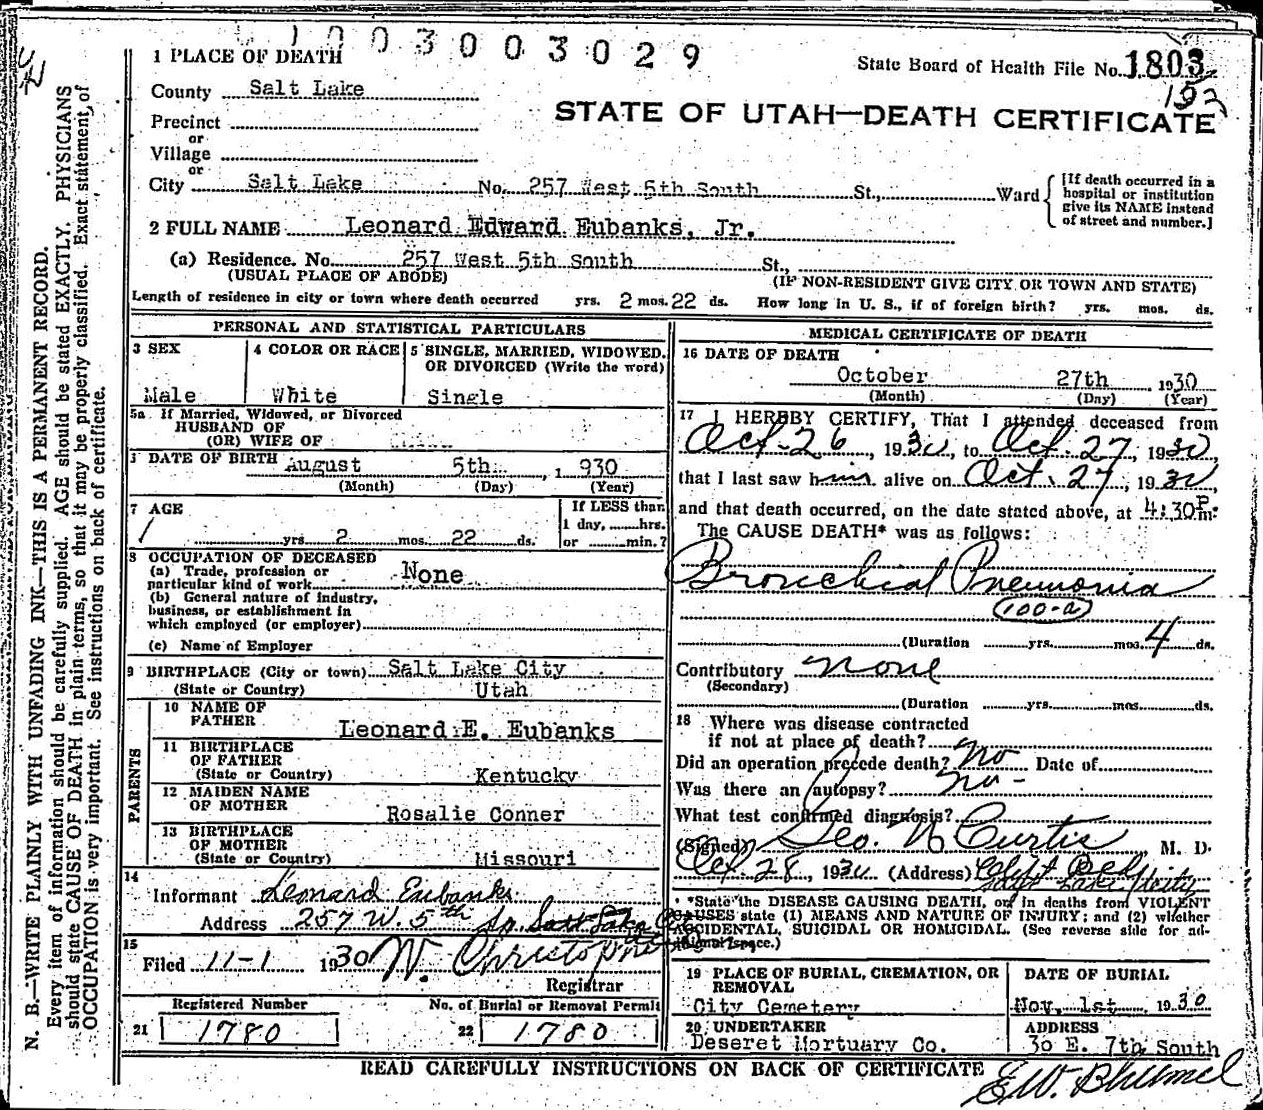 1003003029
1 PLACE OF DEATH
State Board of Health File No. 1803
County Salt Lake
STATE OF UTAH—DEATH CERTIFICATE
Precinct
or
Village
or
City Salt Lake No. 257 West 5th South St., Ward
[If death occurred in a
hospital or institution
give its NAME instead
of street and number.]
2 FULL NAME Leonard Edward Eubanks, Jr.
(a) Residence. No. 257 West 5th South St.,
(USUAL PLACE OF ABODE) (IF NON-RESIDENT GIVE CITY OR TOWN AND STATE)
Length of residence in city or town where death occurred yrs. 2 mos. 22 ds. How long in U. S., if of foreign birth? yrs. mos. ds.
PERSONAL AND STATISTICAL PARTICULARS
3 SEX 4 COLOR OR RACE 5 SINGLE, MARRIED, WIDOWED,
OR DIVORCED (Write the word)
Male White Single
5a If Married, Widowed, or Divorced
HUSBAND OF
(OR) WIFE OF
DATE OF BIRTH August 5th 1930
(Month) (Day) (Year)
7 AGE If LESS than
1 day, hrs.
yrs 2 mos. 22 ds. or min.?
8 OCCUPATION OF DECEASED
(a) Trade, profession or
particular kind of work None
(b) General nature of industry,
business, or establishment in
which employed (or employer)
(c) Name of Employer
9 BIRTHPLACE (City or town) Salt Lake City
(State or Country) Utah
PARENTS
10 NAME OF
FATHER Leonard E. Eubanks
11 BIRTHPLACE
OF FATHER
(State or Country) Kentucky
12 MAIDEN NAME
OF MOTHER Rosalie Conner
13 BIRTHPLACE
OF MOTHER
(State or Country) Missouri
14
Informant Leonard Eubanks
Address 257 W. 5th So. Salt Lake
15
Filed 11-1 1930 W. Christopherson
Registrar
Registered Number No. of Burial or Removal Permit
21 1780 22 1780
MEDICAL CERTIFICATE OF DEATH
16 DATE OF DEATH
October 27th 1930
(Month) (Day) (Year)
17 I HEREBY CERTIFY, That I attended deceased from
Oct. 26, 1930, to Oct. 27, 1930,
that I last saw him alive on Oct. 27, 1930,
and that death occurred, on the date stated above, at 4:30 P.m.
The CAUSE DEATH* was as follows:
Bronchial Pneumonia
(100-a)
(Duration yrs. mos. 4 ds.
Contributory none
(Secondary)
(Duration yrs. mos. ds.
18 Where was disease contracted
if not at place of death?
Did an operation precede death? No Date of
Was there an autopsy? no
What test confirmed diagnosis?
(Signed) Geo. N Curtis, M. D.
Oct 28, 1930 (Address)
*State the DISEASE CAUSING DEATH, or in deaths from VIOLENT
CAUSES state (1) MEANS AND NATURE OF INJURY; and (2) whether
ACCIDENTAL, SUICIDAL OR HOMICIDAL. (See reverse side for ad-
ditional space.)
19 PLACE OF BURIAL, CREMATION, OR
REMOVAL
City Cemetery
DATE OF BURIAL
Nov. 1st 1930
20 UNDERTAKER
Deseret Mortuary Co.
ADDRESS
36 E. 7th South
READ CAREFULLY INSTRUCTIONS ON BACK OF CERTIFICATE
N. B.—WRITE PLAINLY WITH UNFADING INK—THIS IS A PERMANENT RECORD.
Every item of information should be carefully supplied. AGE should be stated EXACTLY. PHYSICIANS
should state CAUSE OF DEATH in plain terms, so that it may be properly classified. Exact statement of
OCCUPATION is very important. See instructions on back of certificate.